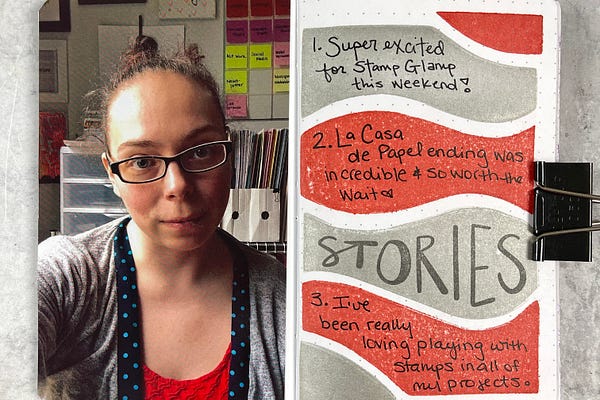 1. Super excited
for Stamp Glamp
this weekend!
2. La Casa
de Papel ending was
incredible & so worth the
wait ♡
STORIES
3. I've
been really
loving playing with
stamps in all of
my projects.